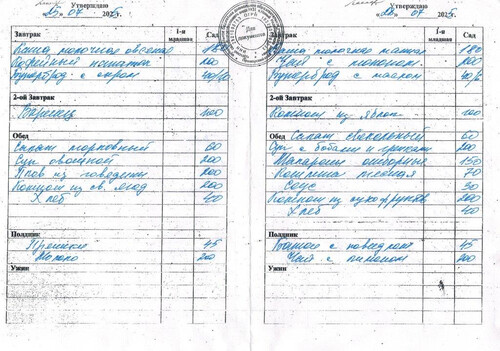 Утверждаю
«25» 07 2025г.
Завтрак
1-я младшая
Сад
Каша молочная овсяная 180
Кофейный напиток 200
Бутерброд с сыром
2-ой Завтрак
Варенец 100
Обед
Салат морковный 60
Суп овощной 200
Плов из говядины 200
Компот из св. ягод 200
Хлеб 40
Полдник
Пряники 45
Молоко 200
Ужин
Для документов
Утверждаю
07
Завтрак
1-я младшая
Сад
Каша молочная 180
Чай с молоком 200
Бутерброд с маслом
2-ой Завтрак
Компот из яблок 100
Обед
Салат свекольный 60
Суп с бобами и гренками 200
Макароны отварные 150
70
Соус 30
Компот из сухофруктов 200
Хлеб 40
Полдник
Батон с повидлом 45
Чай с лимоном 200
Ужин